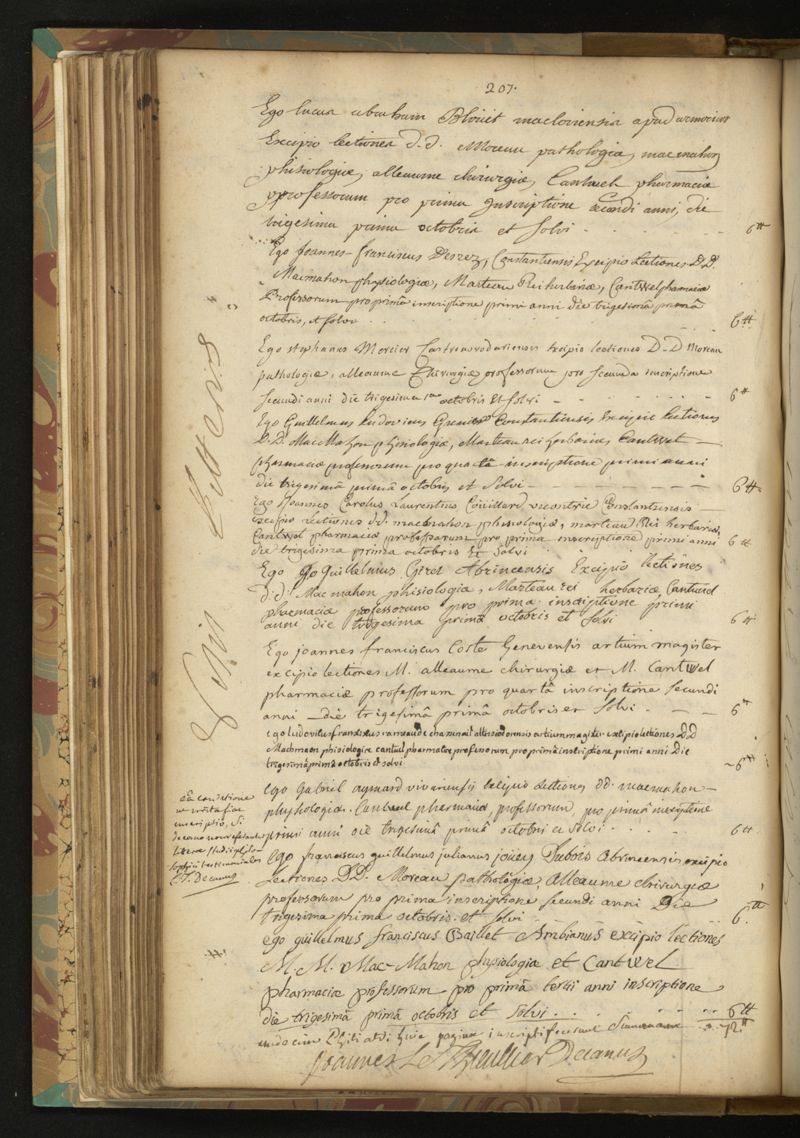 207.
Ego lucas abraham Bloüet macloviensis apud armoricos
Excipio lectiones d.d. Moreau pathologiæ, macmahon
phisiologiæ, alleaume chirurgiæ, Cantwel pharmaciæ
professorum pro prima Inscriptione secundi anni, die
trigesima prima octobris et solvi 6ᵗᵗ
Ego Joannes franciscus Desrez, Constantiensis Excipio Lectiones D.D.
Macmahon physiologiæ, Marteau Rei herbariæ, Cantwel pharmaciæ
Professorum pro primâ inscriptione primi anni die trigesimâ primâ
octobris, et solvi 6ᵗᵗ
Ego stephanus Mercier excipio lectiones D.D Moreau
pathologiæ, alleaume Chirurgiæ professorum pro secunda inscriptione
secundi anni die trigesima 1ᵃ octobris Et solvi 6ᵗᵗ
Ego Guillelmus Ludovicus Constantiensis Excipio lectiones
D.D. MacMahon phisiologiæ, Marteau rei herbariæ Cantwel
pharmaciæ professorum pro quartâ inscriptione primi anni
die trigesimâ primâ octobris et solvi 6ᵗᵗ
Ego Joannes Carolus Laurentius Couillard Constantiensis
excipio Lectiones dd. macmahon phisiologiæ, marteau Rei herbariæ,
Cantwel pharmaciæ professorum pro prima inscriptione primi anni
die trigesima prima octobris Et solvi 6ᵗᵗ
Ego Guillelmus Giret Abrincensis Excipio lectiones
d.d. Mac mahon phisiologiæ, Marteau rei herbariæ, Cantwel
pharmaciæ professorum pro prima inscriptione primi
anni die trigesima prima octobris et solvi 6ᵗᵗ
Ego joannes franciscus Coste Genevensis artium magister
excipio lectiones M. alleaume chirurgiæ et M. Cantwel
pharmaciæ professorum pro quartâ inscriptione secundi
anni die trigesimâ primâ octobris et solvi 6ᵗᵗ
ego ludovicus franciscus altissiodorensis artium magister excipio lectiones D.D
Machmaon phisiologiæ cantuel pharmaciæ professorum pro primâ inscriptione primi anni Die
trigesimâ primâ octobris et solvi 6ᵗᵗ
Ego Gabriel aymard vivariensis excipio lectiones dd. macmahon
physiologiæ. Cantwel pharmaciæ, professorum pro primâ inscriptione
primi anni die trigesimâ primâ octobris et solvi 6ᵗᵗ
Ea conditione
ut irrita sit
inscriptio, si
decano
Decanus
Ego franciscus guillelmus julianus Dubois abrincensis excipio
Lectiones D.D. Moreau pathologiæ, Alleaume chirurgiæ
professorum pro prima inscriptione secundi anni Die
trigesima prima octobris et solvi 6.ᵗᵗ
ego guillelmus franciscus Baillet Ambianus excipio lectiones
M.M. Mac-Mahon physiologiæ et Cantwel
pharmaciæ professorum pro primâ tertii anni inscriptione
die trigesimâ primâ octobris et solvi 6ᵗᵗ
paginæ inscripti fecerunt summam 72ᵗᵗ
Joannes Le Thieullier Decanus